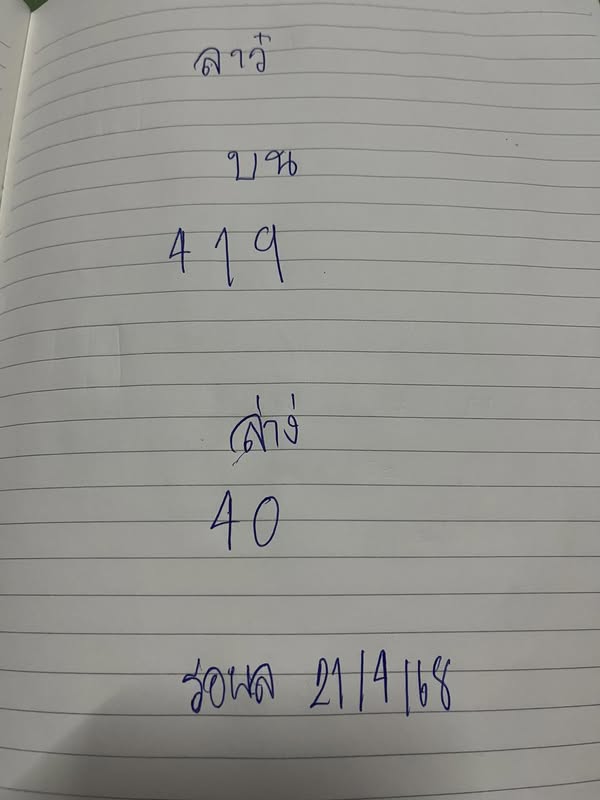 ลาว๋
บน
419
ล่าง่
40
รอผล 21/4/68